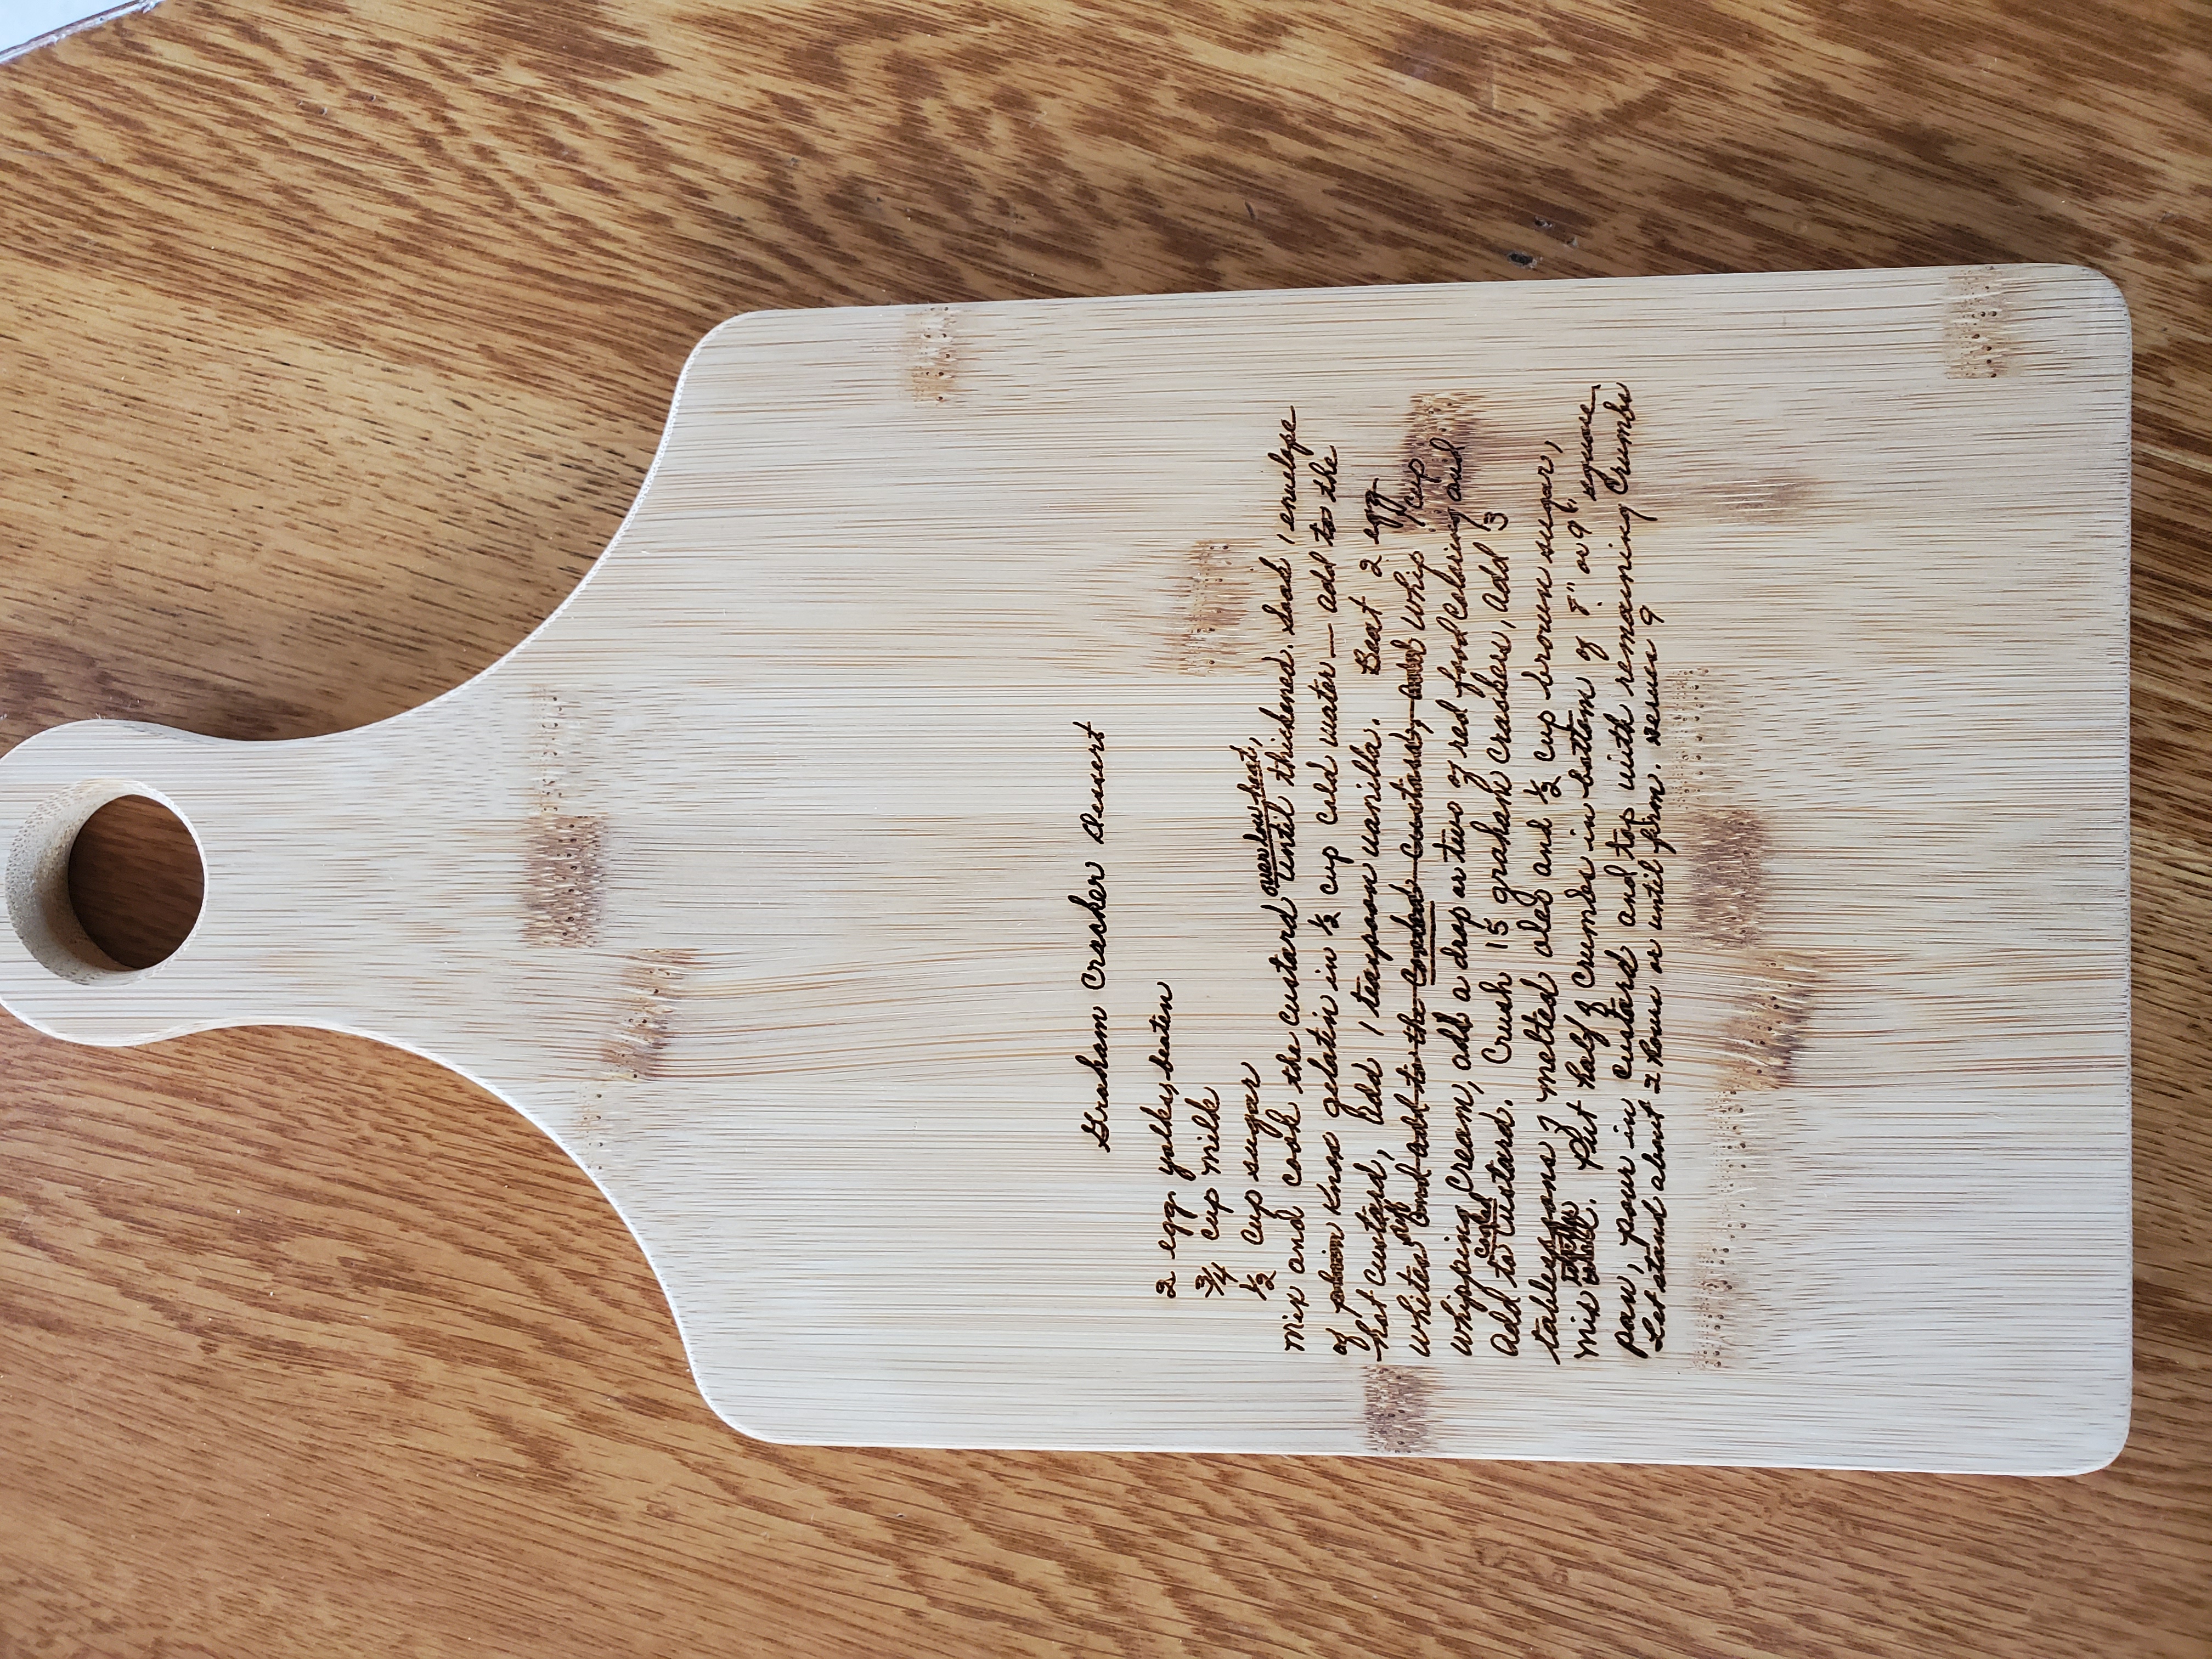 Graham Cracker Dessert
2 egg yolks, beaten
3/4 cup milk
1/2 cup sugar
over low heat,
Mix and cook the custard until thickened. Soak 1 envelope
of plain Knox gelatin in 1/2 cup cold water — add to the
hot custard, Add 1 teaspoon vanilla. Beat 2 egg
whites and add to the cooked custard, and whip 1 cup
whipping cream, add a drop or two of red food coloring and
cooled
Add to custard. Crush 15 graham crackers, Add 3
tablespoons of melted oleo and 1/2 cup brown sugar,
Mix. Put half of crumbs in bottom of 8" or 9" square
pan, pour in custard and top with remaining crumbs
Let stand about 2 hours or until firm. serves 9